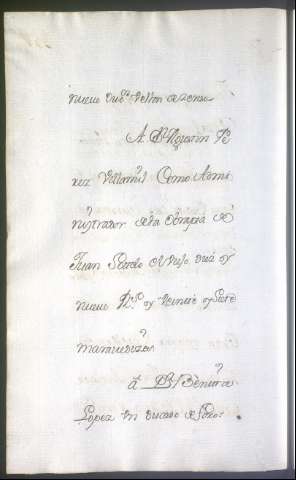 nueve Du.s Vellon de zenso
A Dn Agustin Pe
rez Villamil Como Admi
nistrador de la Obrapia de
Juan Pardo
nueve Rs y Veinte y Siete
maravedizes
á Dn Benito
Lopez Un ducado de foro.